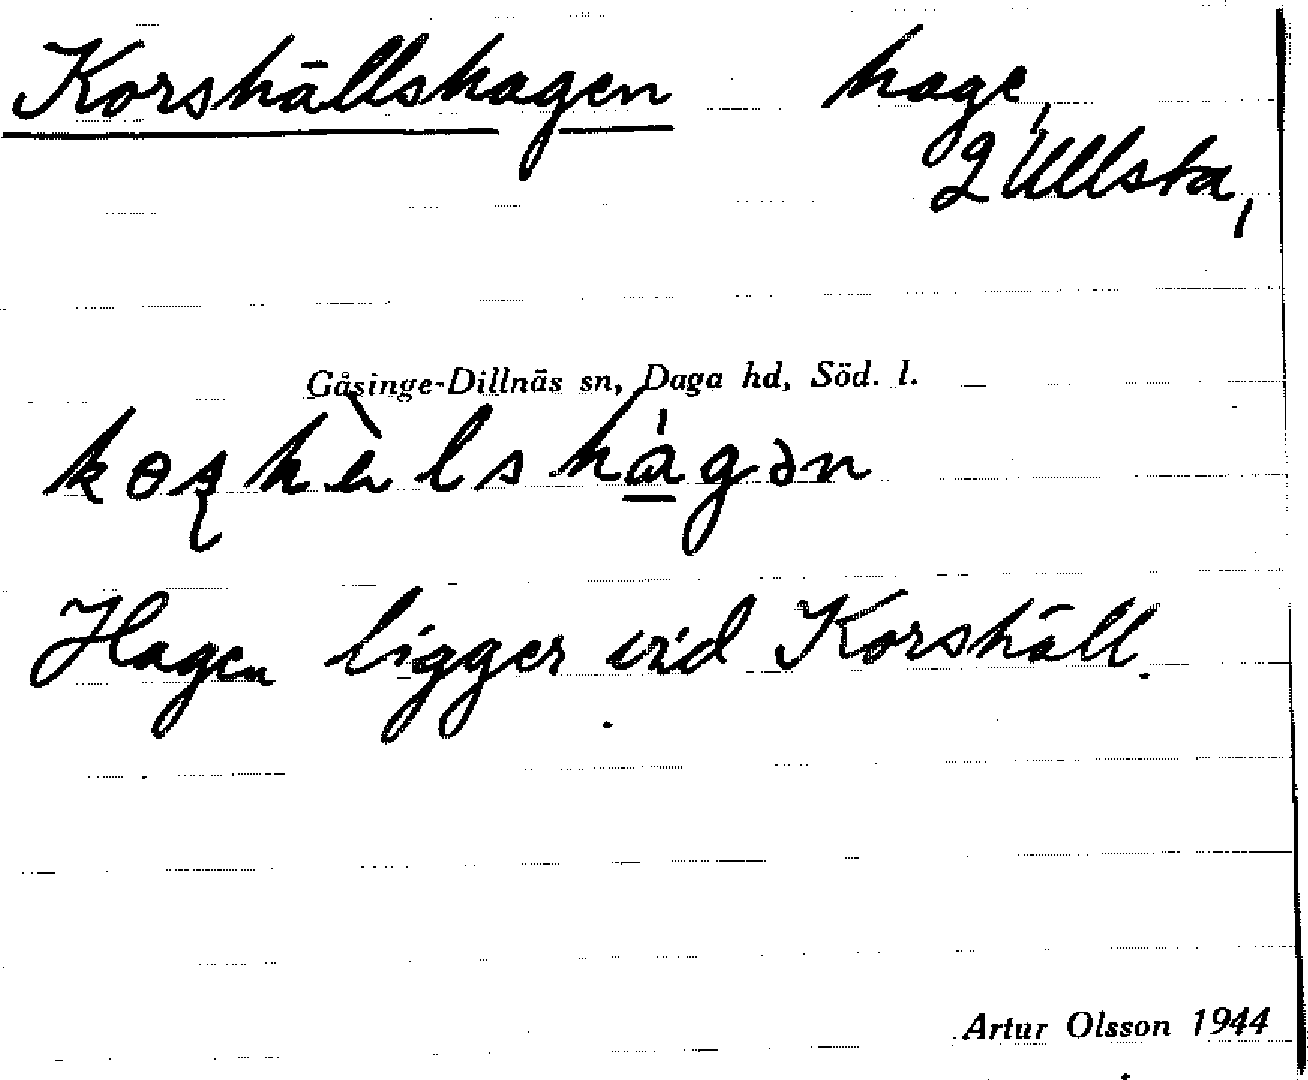 Korshällshagen hage,
2 Ullsta,
Gåsinge-Dillnäs sn, Daga hd, Söd. l.
Hagen ligger vid Korshäll.
Artur Olsson 1944